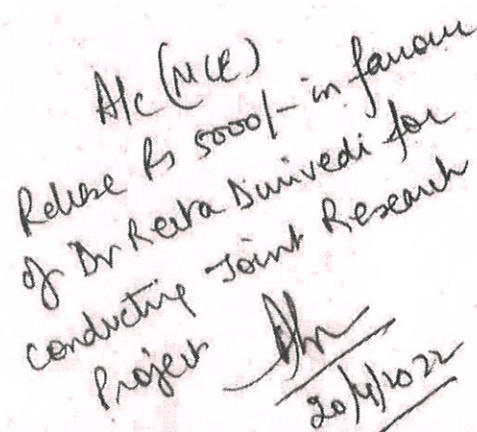 A/c (NCE)
Release Rs 5000/- in favour
of Dr Reeta Dwivedi for
conducting Joint Research
Project
20/4/2022